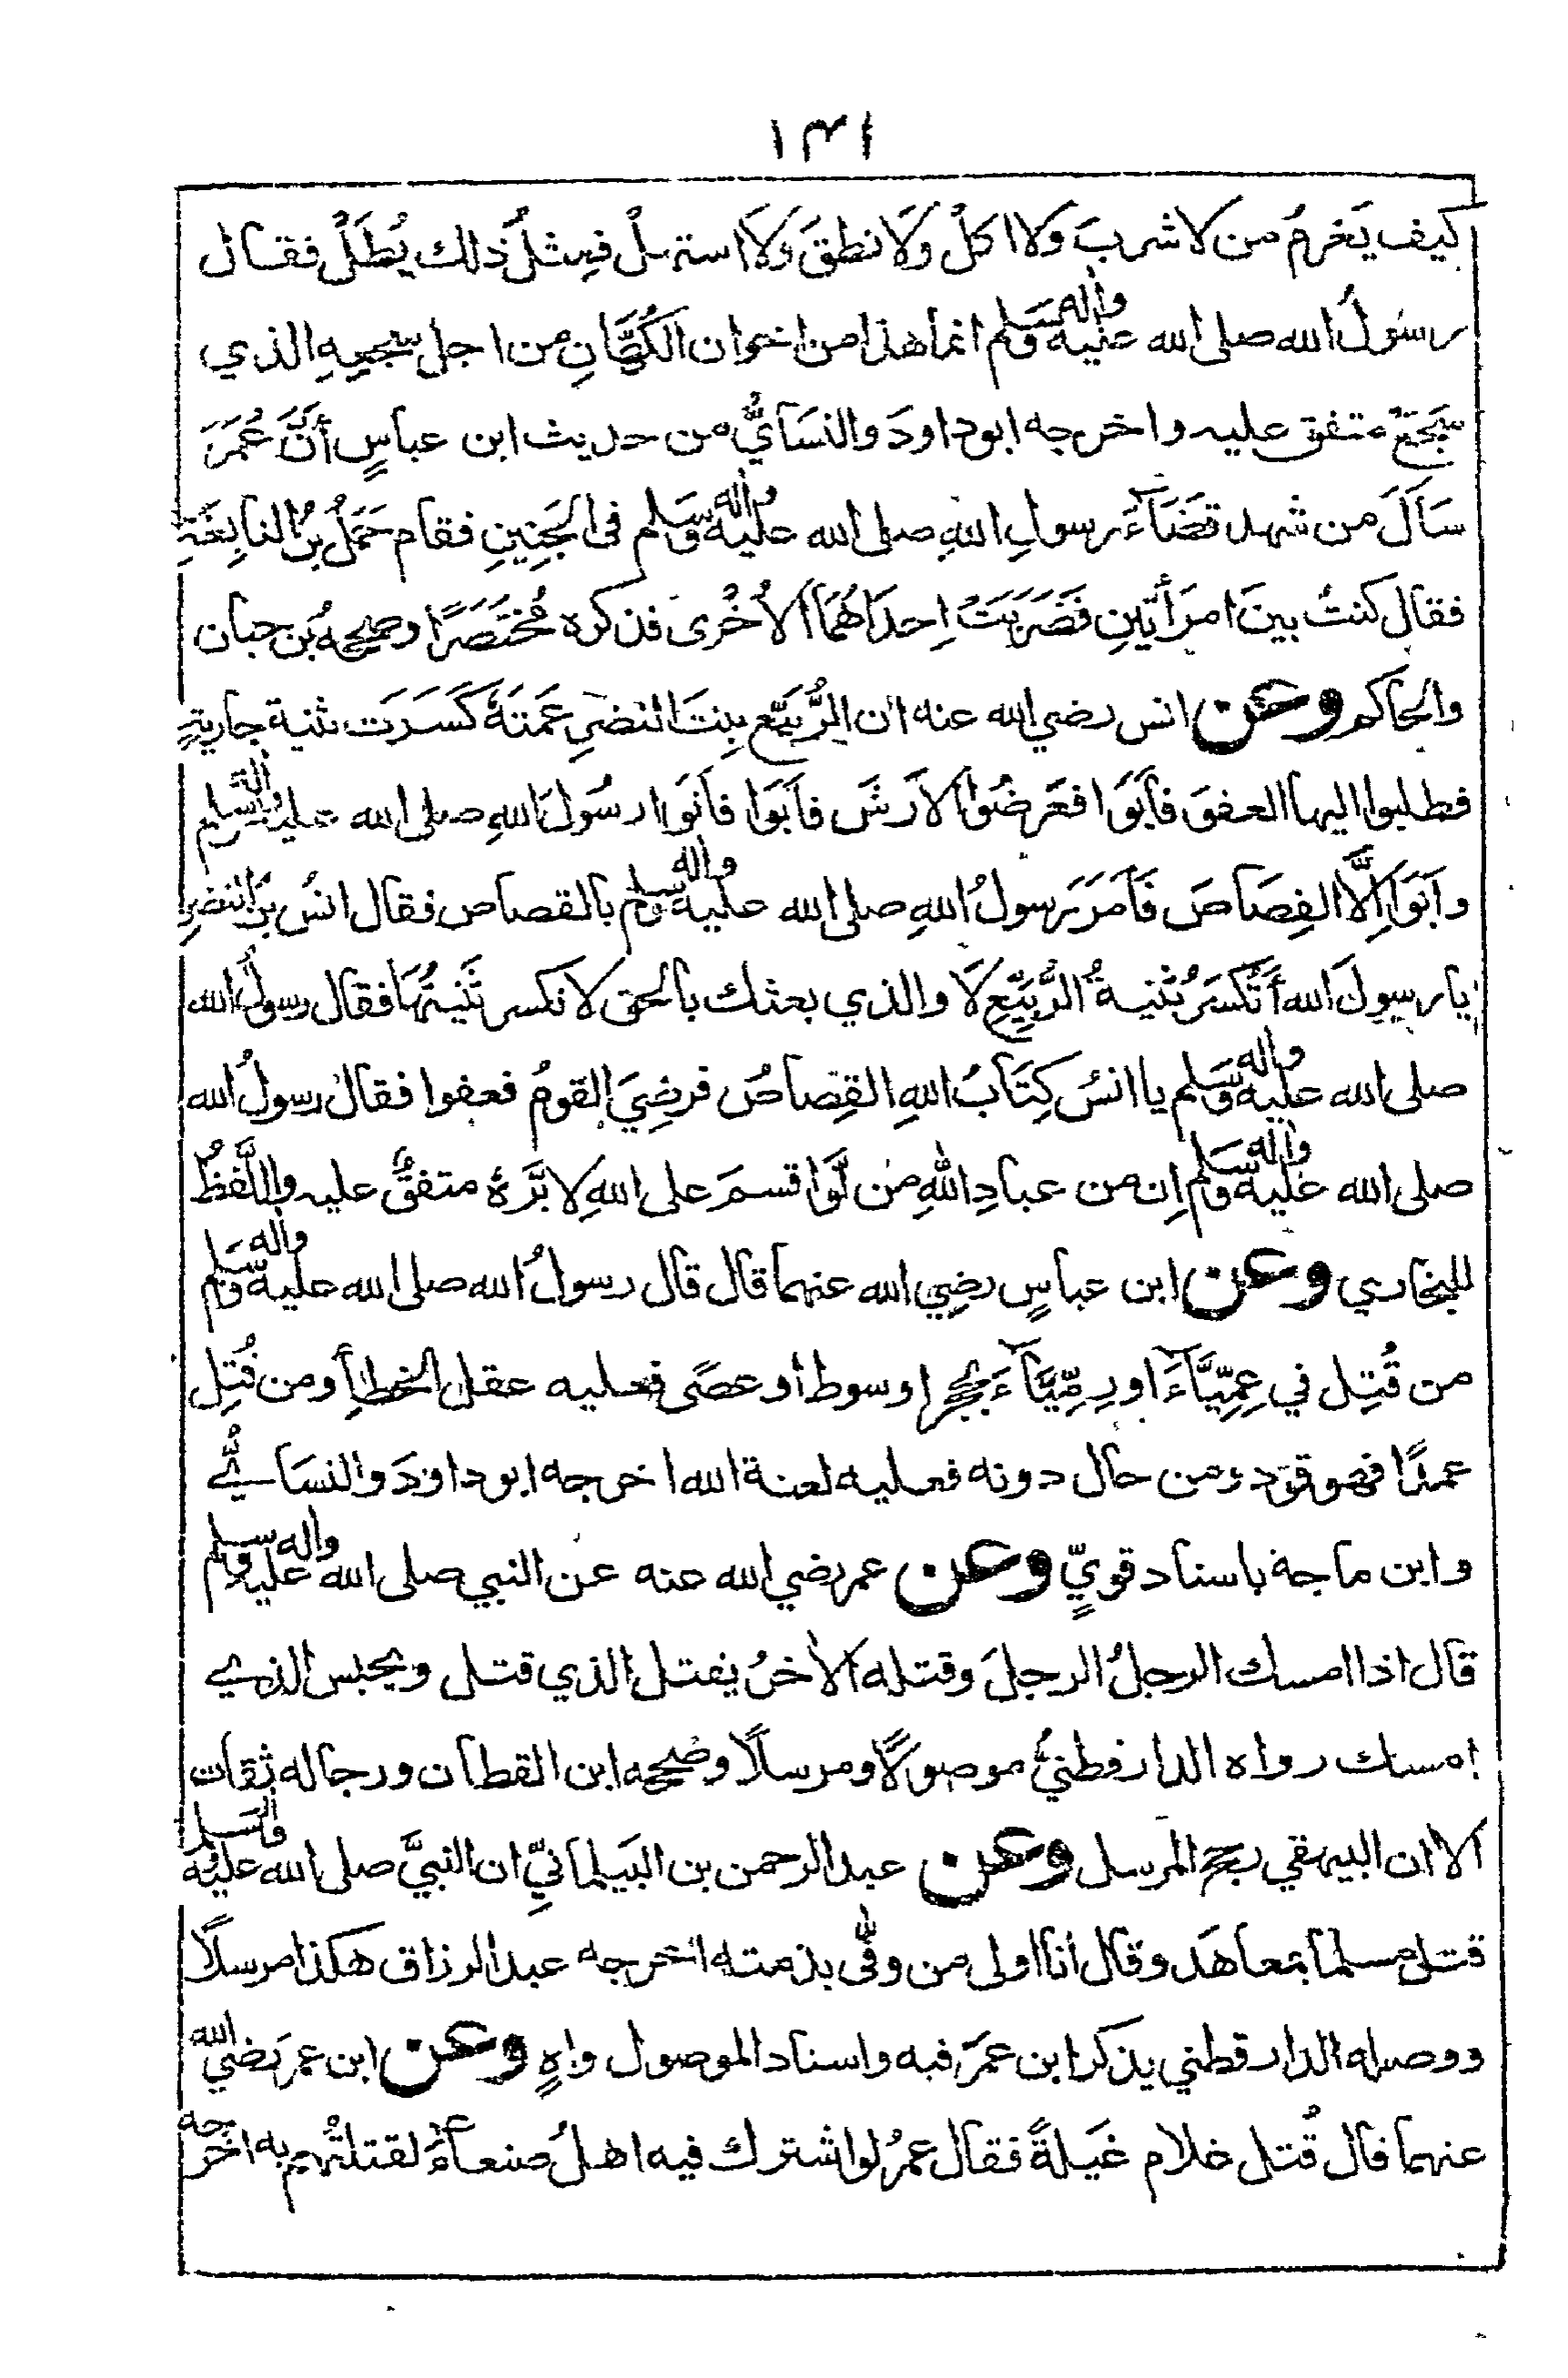 ١٣١
كيف يَغرمُ من لا شربَ ولا اكلْ ولَا نطقَ ولَا استهلْ فمِثلُ ذلك يُطَلُّ فقال
رسولُ الله صلى الله عليه واله وسَلم انما هذا من اخوان الكُهَّانِ من اجل سَجعِهِ الذي
سَجَعَ متفق عليه واخرجه ابوداودَ والنسَائيُّ من حديث ابن عباسٍ أنَّ عُمَرَ
سَاَلَ من شهد قضَاءَ رسولِ اللهِ صلى الله عليه واله وسَلم فى الجَنِينِ فقام حَمَلُ بنُ النابِغَةِ
فقال كنتُ بينَ امرَأتينِ فَضَرَبَتْ اِحدَاهُمَا الأُخْرى فذكره مُختَصَرًا وصححهُ بن حبان
والحاكم وعن انس رضي الله عنه ان الرُّبَيِّع بِنتَ النضرِ عَمَتَهُ كَسَرَت ثنية جاريةٍ
فطلبوا اليها العفوَ فاَبَوَا فعَرضُوا الاَرشَ فاَبَوَا فاَتوَا رسُولَ اللهِ صلى الله عليه واله وسلم
واَبَوَا اِلَّا القِصَاصَ فَاَمَرَ رسولُ اللهِ صلى الله عليه واله وسلم بالقصاص فقال انسُ بنُ النضرِ
يا رسولَ الله أَتُكسَرُ ثنيةُ الرُّبَيِّعِ لَا والذي بعثك بالحق لا تكسر ثَنِيتُهَا فقال رسولُ الله
صلى الله عليه واله وسَلم يا انسُ كِتَابُ اللهِ القِصاصُ فرضِيَ القومُ فعفوا فقال رسولُ الله
صلى الله عليه واله وسَلم اِن من عبادِ اللهِ من لَّوَ اقسمَ على اللهِ لابَّرَهُ متفقٌ عليه واللَّفظُ
للبخاري وعن ابن عباسٍ رضِي الله عنهما قال قال رسولُ الله صلى الله عليه واله وسَلم
من قُتِل في عِمِّيَّاءَ اورِمِّيَّاءَ بحجر او سوط أو عصًى فعليه عقل الخطأِ ومن قُتِل
عمدًا فهو قود ومن حال دونه فعليه لعنة الله اخرجه ابوداودَ والنسَائيُّ
وابن ماجة باسناد قويٍّ وعن عمر رضي الله عنه عن النبي صلى الله عليه واله وسلم
قال اذا امسك الرجلُ الرجلَ وقتله الاخرُ يقتل الذي قتل ويحبس الذي
امسك رواه الدارقطنيُّ موصولًا ومرسلًا وصححه ابن القطان ورجاله ثقات
الا ان البيهقي رجح المرسل وعن عبدالرحمن بن البَيلمانيِّ ان النبيَّ صلى الله عليه واله وسلم
قتل مسلما بمعاهَد وقال أنا اولى من وفَّى بذمته اخرجه عبدالرزاق هكذا مرسلًا
ووصله الدارقطني يذكر ابن عمرَ فيه واسناد الموصول واهٍ وعن ابن عمر رَضي الله
عنهما قال قُتل غلام غَيلةً فقال عمرُ لو اشترك فيه اهلُ صنعاءَ لقتلتُهم به اخرجه